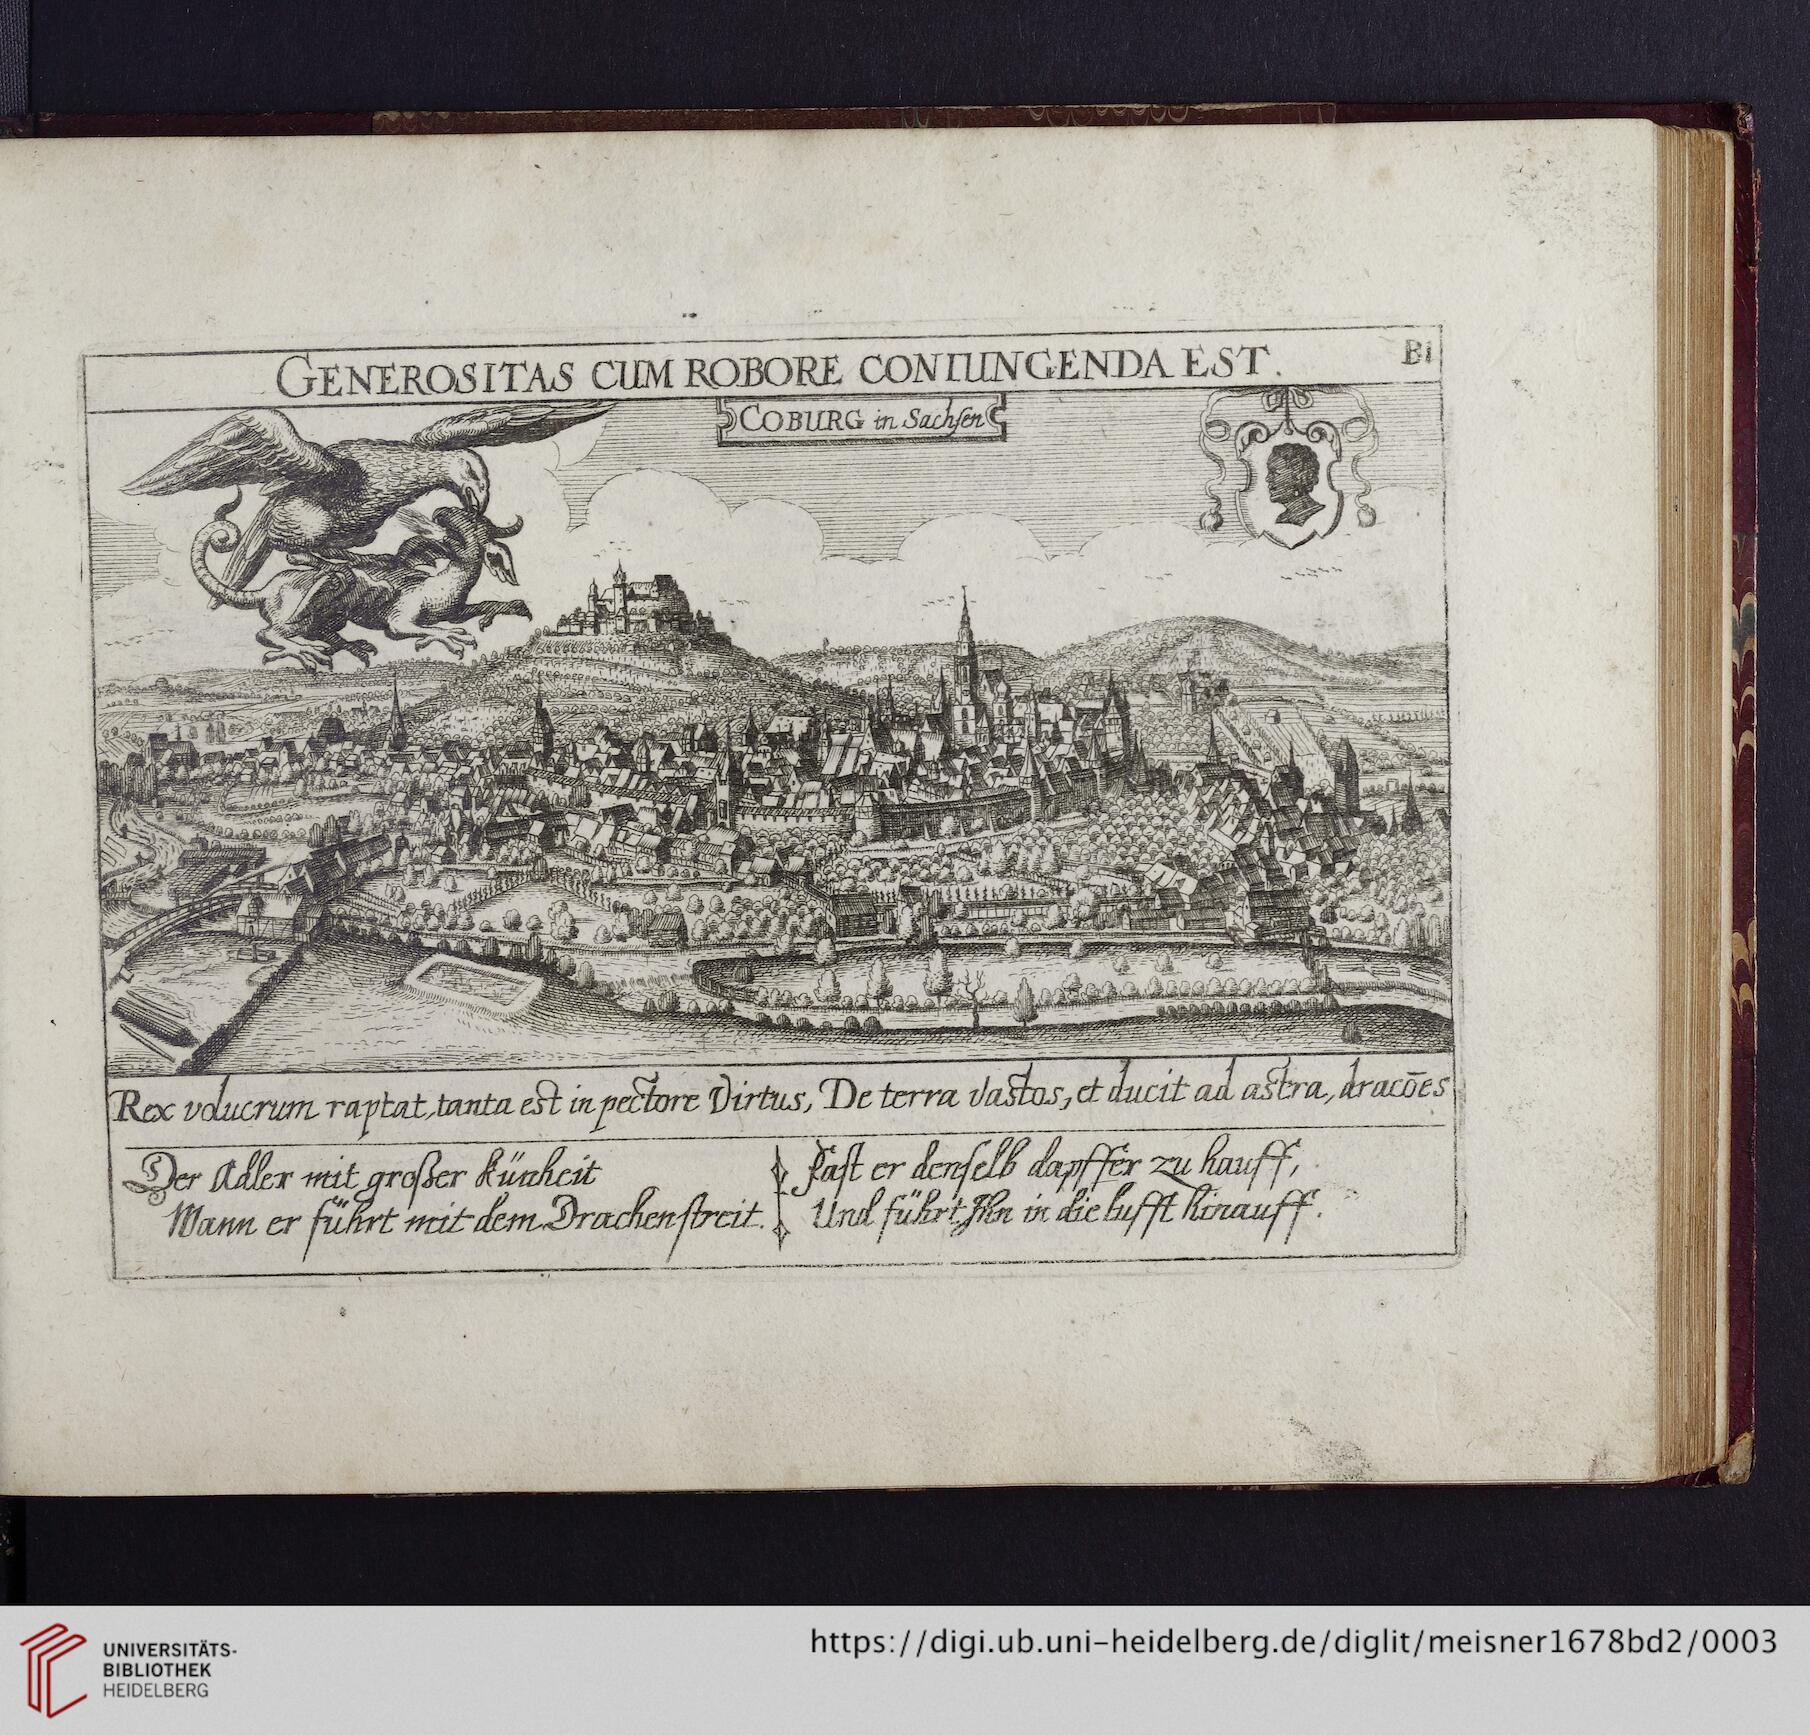 GENEROSITAS CUM ROBORE CONIUNGENDA EST.
B1
COBURG in Sachsen
Rex volucrum raptat, tanta est in pectore Virtus, De terra vastos, et ducit ad astra, dracōes
Der Adler mit großer künheit
Wann er führt mit dem Drachenstreit.
Fast er denselb dapffer zu hauff,
Und führt Ihn in die lufft hinauff.
UNIVERSITÄTS-
BIBLIOTHEK
HEIDELBERG
https://digi.ub.uni-heidelberg.de/diglit/meisner1678bd2/0003